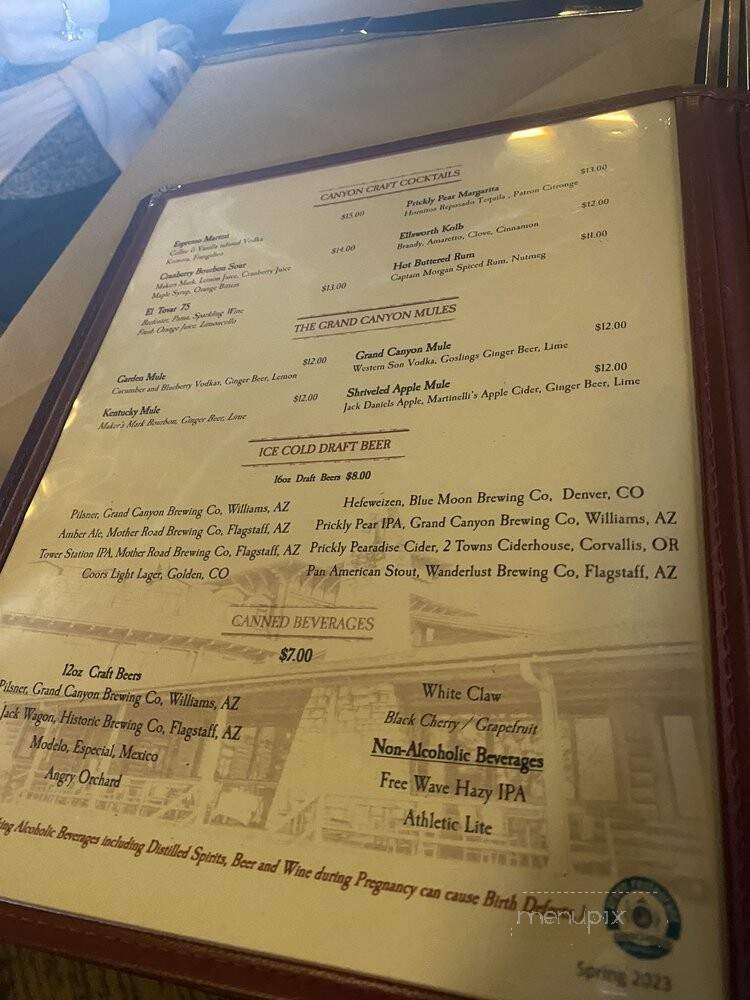 CANYON CRAFT COCKTAILS
Espresso Martini $15.00
Coffee & Vanilla infused Vodka
Kamora, Frangelico
Cranberry Bourbon Sour $14.00
Makers Mark, Lemon Juice, Cranberry Juice
Maple Syrup, Orange Bitters
El Tovar 75 $13.00
Beefeater, Pama, Sparkling Wine
Fresh Orange Juice, Limoncello
Prickly Pear Margarita $13.00
Hornitos Reposado Tequila , Patron Citronge
Ellsworth Kolb $12.00
Brandy, Amaretto, Clove, Cinnamon
Hot Buttered Rum $11.00
Captain Morgan Spiced Rum, Nutmeg
THE GRAND CANYON MULES
Garden Mule $12.00
Cucumber and Blueberry Vodkas, Ginger Beer, Lemon
Kentucky Mule $12.00
Maker's Mark Bourbon, Ginger Beer, Lime
Grand Canyon Mule $12.00
Western Son Vodka, Goslings Ginger Beer, Lime
Shriveled Apple Mule $12.00
Jack Daniels Apple, Martinelli's Apple Cider, Ginger Beer, Lime
ICE COLD DRAFT BEER
16oz Draft Beers $8.00
Pilsner, Grand Canyon Brewing Co, Williams, AZ
Amber Ale, Mother Road Brewing Co, Flagstaff, AZ
Tower Station IPA, Mother Road Brewing Co, Flagstaff, AZ
Coors Light Lager, Golden, CO
Hefeweizen, Blue Moon Brewing Co, Denver, CO
Prickly Pear IPA, Grand Canyon Brewing Co, Williams, AZ
Prickly Pearadise Cider, 2 Towns Ciderhouse, Corvallis, OR
Pan American Stout, Wanderlust Brewing Co, Flagstaff, AZ
CANNED BEVERAGES
$7.00
12oz Craft Beers
Pilsner, Grand Canyon Brewing Co, Williams, AZ
Jack Wagon, Historic Brewing Co, Flagstaff, AZ
Modelo, Especial, Mexico
Angry Orchard
White Claw
Black Cherry / Grapefruit
Non-Alcoholic Beverages
Free Wave Hazy IPA
Athletic Lite
Alcoholic Beverages including Distilled Spirits, Beer and Wine during Pregnancy can cause Birth Defects
menupix
Spring 2023